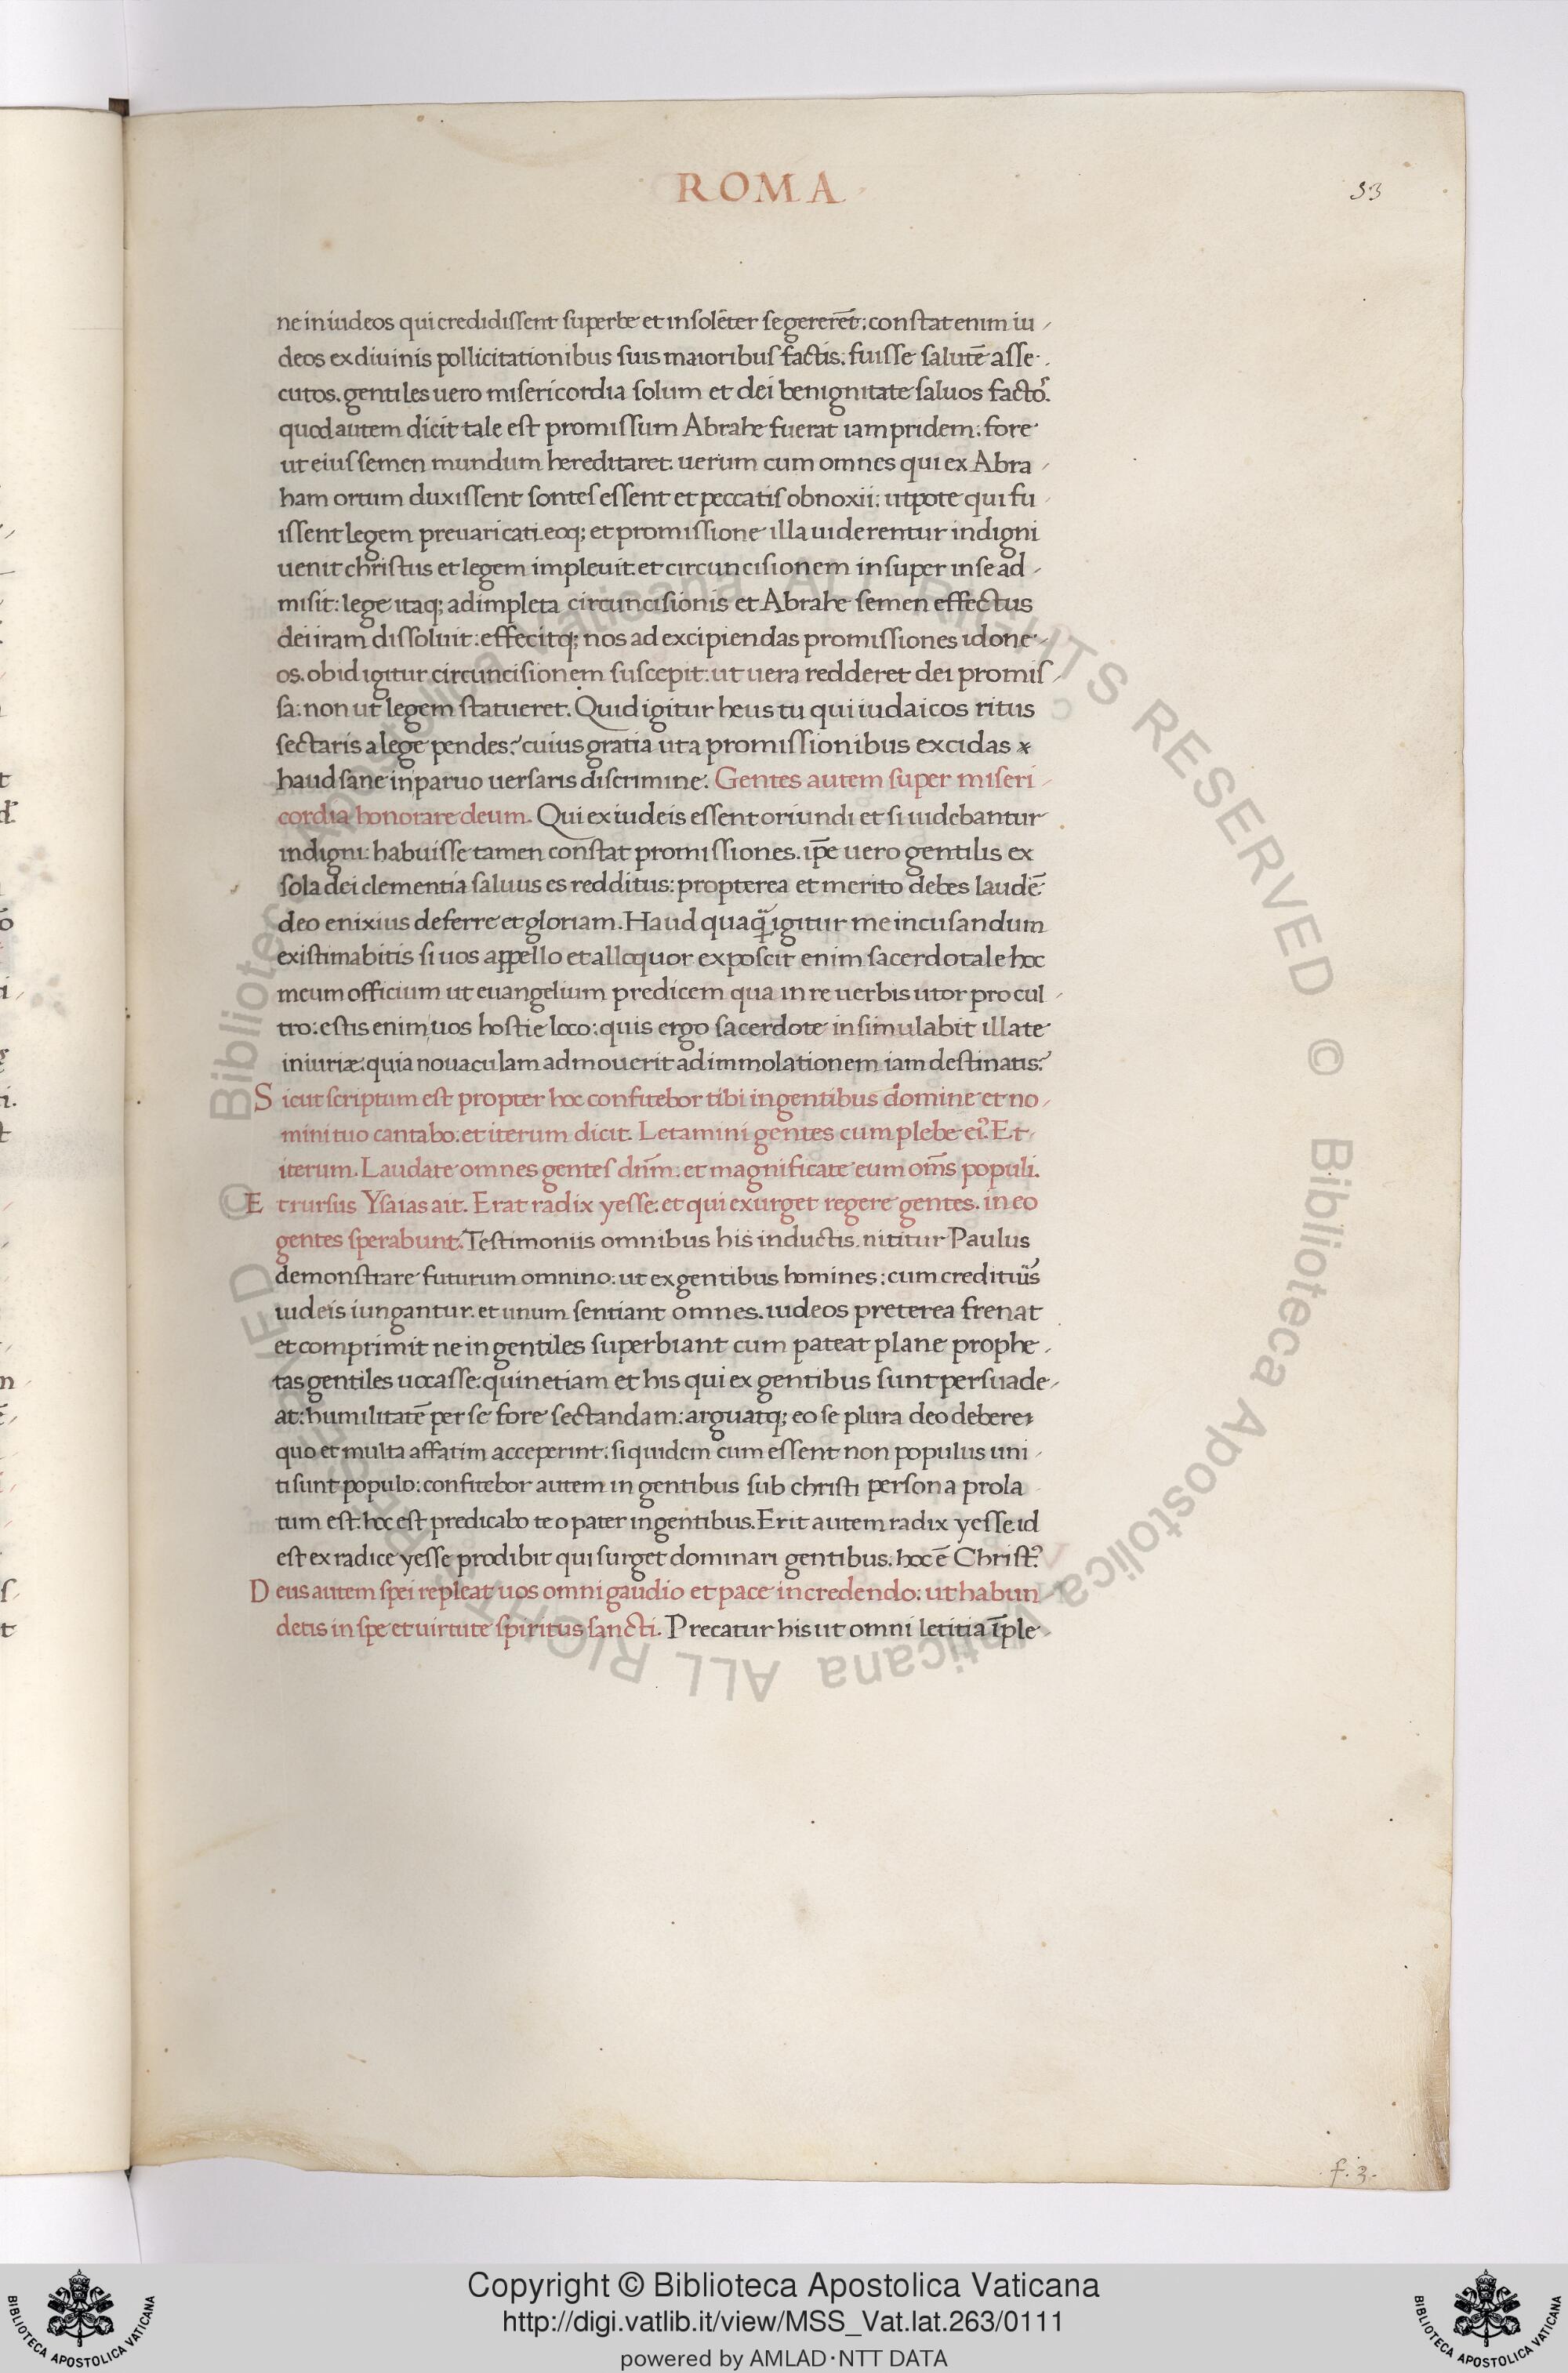 ROMA
53
ne in iudeos qui credidissent superbe et insolēter se gererēt: constat enim iu
deos ex diuinis pollicitationibus suis maioribus factis: fuisse salutē asse
cutos. gentiles uero misericordia solum et dei benignitate saluos facto⁹.
quod autem dicit tale est promissum Abrahe fuerat iam pridem: fore
ut eius semen mundum hereditaret. uerum cum omnes qui ex Abra
ham ortum duxissent sontes essent et peccatis obnoxii: utpote qui fu
issent legem preuaricati. eoq; et promissione illa uiderentur indigni
uenit christus et legem impleuit. et circuncisionem insuper in se ad
misit: lege itaq; adimpleta circuncisionis et Abrahe semen effectus
dei iram dissoluit: effecitq; nos ad excipiendas promissiones idone
os. ob id igitur circuncisionem suscepit: ut uera redderet dei promis
sa: non ut legem statueret. Quid igitur heus tu qui iudaicos ritus
sectaris a lege pendes? cuius gratia ut a promissionibus excidas
haud sane in paruo uersaris discrimine. Gentes autem super miseri
cordia honorare deum. Qui ex iudeis essent oriundi et si uidebantur
indigni: habuisse tamen constat promissiones. ip̄e uero gentilis ex
sola dei clementia saluus es redditus: propterea et merito debes laudē
deo enixius deferre et gloriam. Haud quaq̄ igitur me incusandum
existimabitis si uos appello et alloquor exposcit enim sacerdotale hoc
meum officium ut euangelium predicem qua in re uerbis utor pro cul
tro: estis enim uos hostie loco: quis ergo sacerdote insimulabit illate
iniuriæ: quia nouaculam admouerit ad immolationem iam destinatis?
Sicut scriptum est propter hoc confitebor tibi in gentibus domine et no
mini tuo cantabo: et iterum dicit. Letamini gentes cum plebe ei⁹. Et
iterum. Laudate omnes gentes dn̄m: et magnificate eum om̄s populi.
Et rursus Ysaias ait. Erat radix yesse: et qui exurget regere gentes. in eo
gentes sperabunt. Testimoniis omnibus his inductis. nititur Paulus
demonstrare futurum omnino: ut ex gentibus homines: cum
iudeis iungantur. et unum sentiant omnes. iudeos preterea frenat
et comprimit ne in gentiles superbiant cum pateat plane prophe
tas gentiles uocasse: quin etiam et his qui ex gentibus sunt persuade
at: humilitatē per se fore sectandam: arguatq; eo se plura deo debere:
quo et multa affatim acceperint: siquidem cum essent non populus uni
ti sunt populo: confitebor autem in gentibus sub christi persona prola
tum est. hoc est predicabo te o pater in gentibus. Erit autem radix yesse id
est ex radice yesse prodibit qui surget dominari gentibus. hoc ē Christ⁹.
Deus autem spei repleat uos omni gaudio et pace in credendo: ut habun
detis in spe et uirtute spiritus sancti. Precatur his ut omni letitia īple
f. 3.
© Biblioteca Apostolica Vaticana ALL RIGHTS RESERVED © Biblioteca Apostolica Vaticana ALL RIGHTS RESERVED
Copyright © Biblioteca Apostolica Vaticana
http://digi.vatlib.it/view/MSS_Vat.lat.263/0111
powered by AMLAD·NTT DATA
BIBLIOTECA APOSTOLICA VATICANA
BIBLIOTECA APOSTOLICA VATICANA